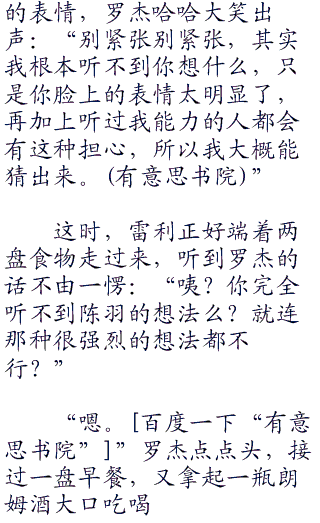 的表情，罗杰哈哈大笑出
声：“别紧张别紧张，其实
我根本听不到你想什么，只
是你脸上的表情太明显了，
再加上听过我能力的人都会
有这种担心，所以我大概能
猜出来。(有意思书院)”
这时，雷利正好端着两
盘食物走过来，听到罗杰的
话不由一愣：“咦？你完全
听不到陈羽的想法么？就连
那种很强烈的想法都不
行？”
“嗯。[百度一下“有意
思书院”]”罗杰点点头，接
过一盘早餐，又拿起一瓶朗
姆酒大口吃喝